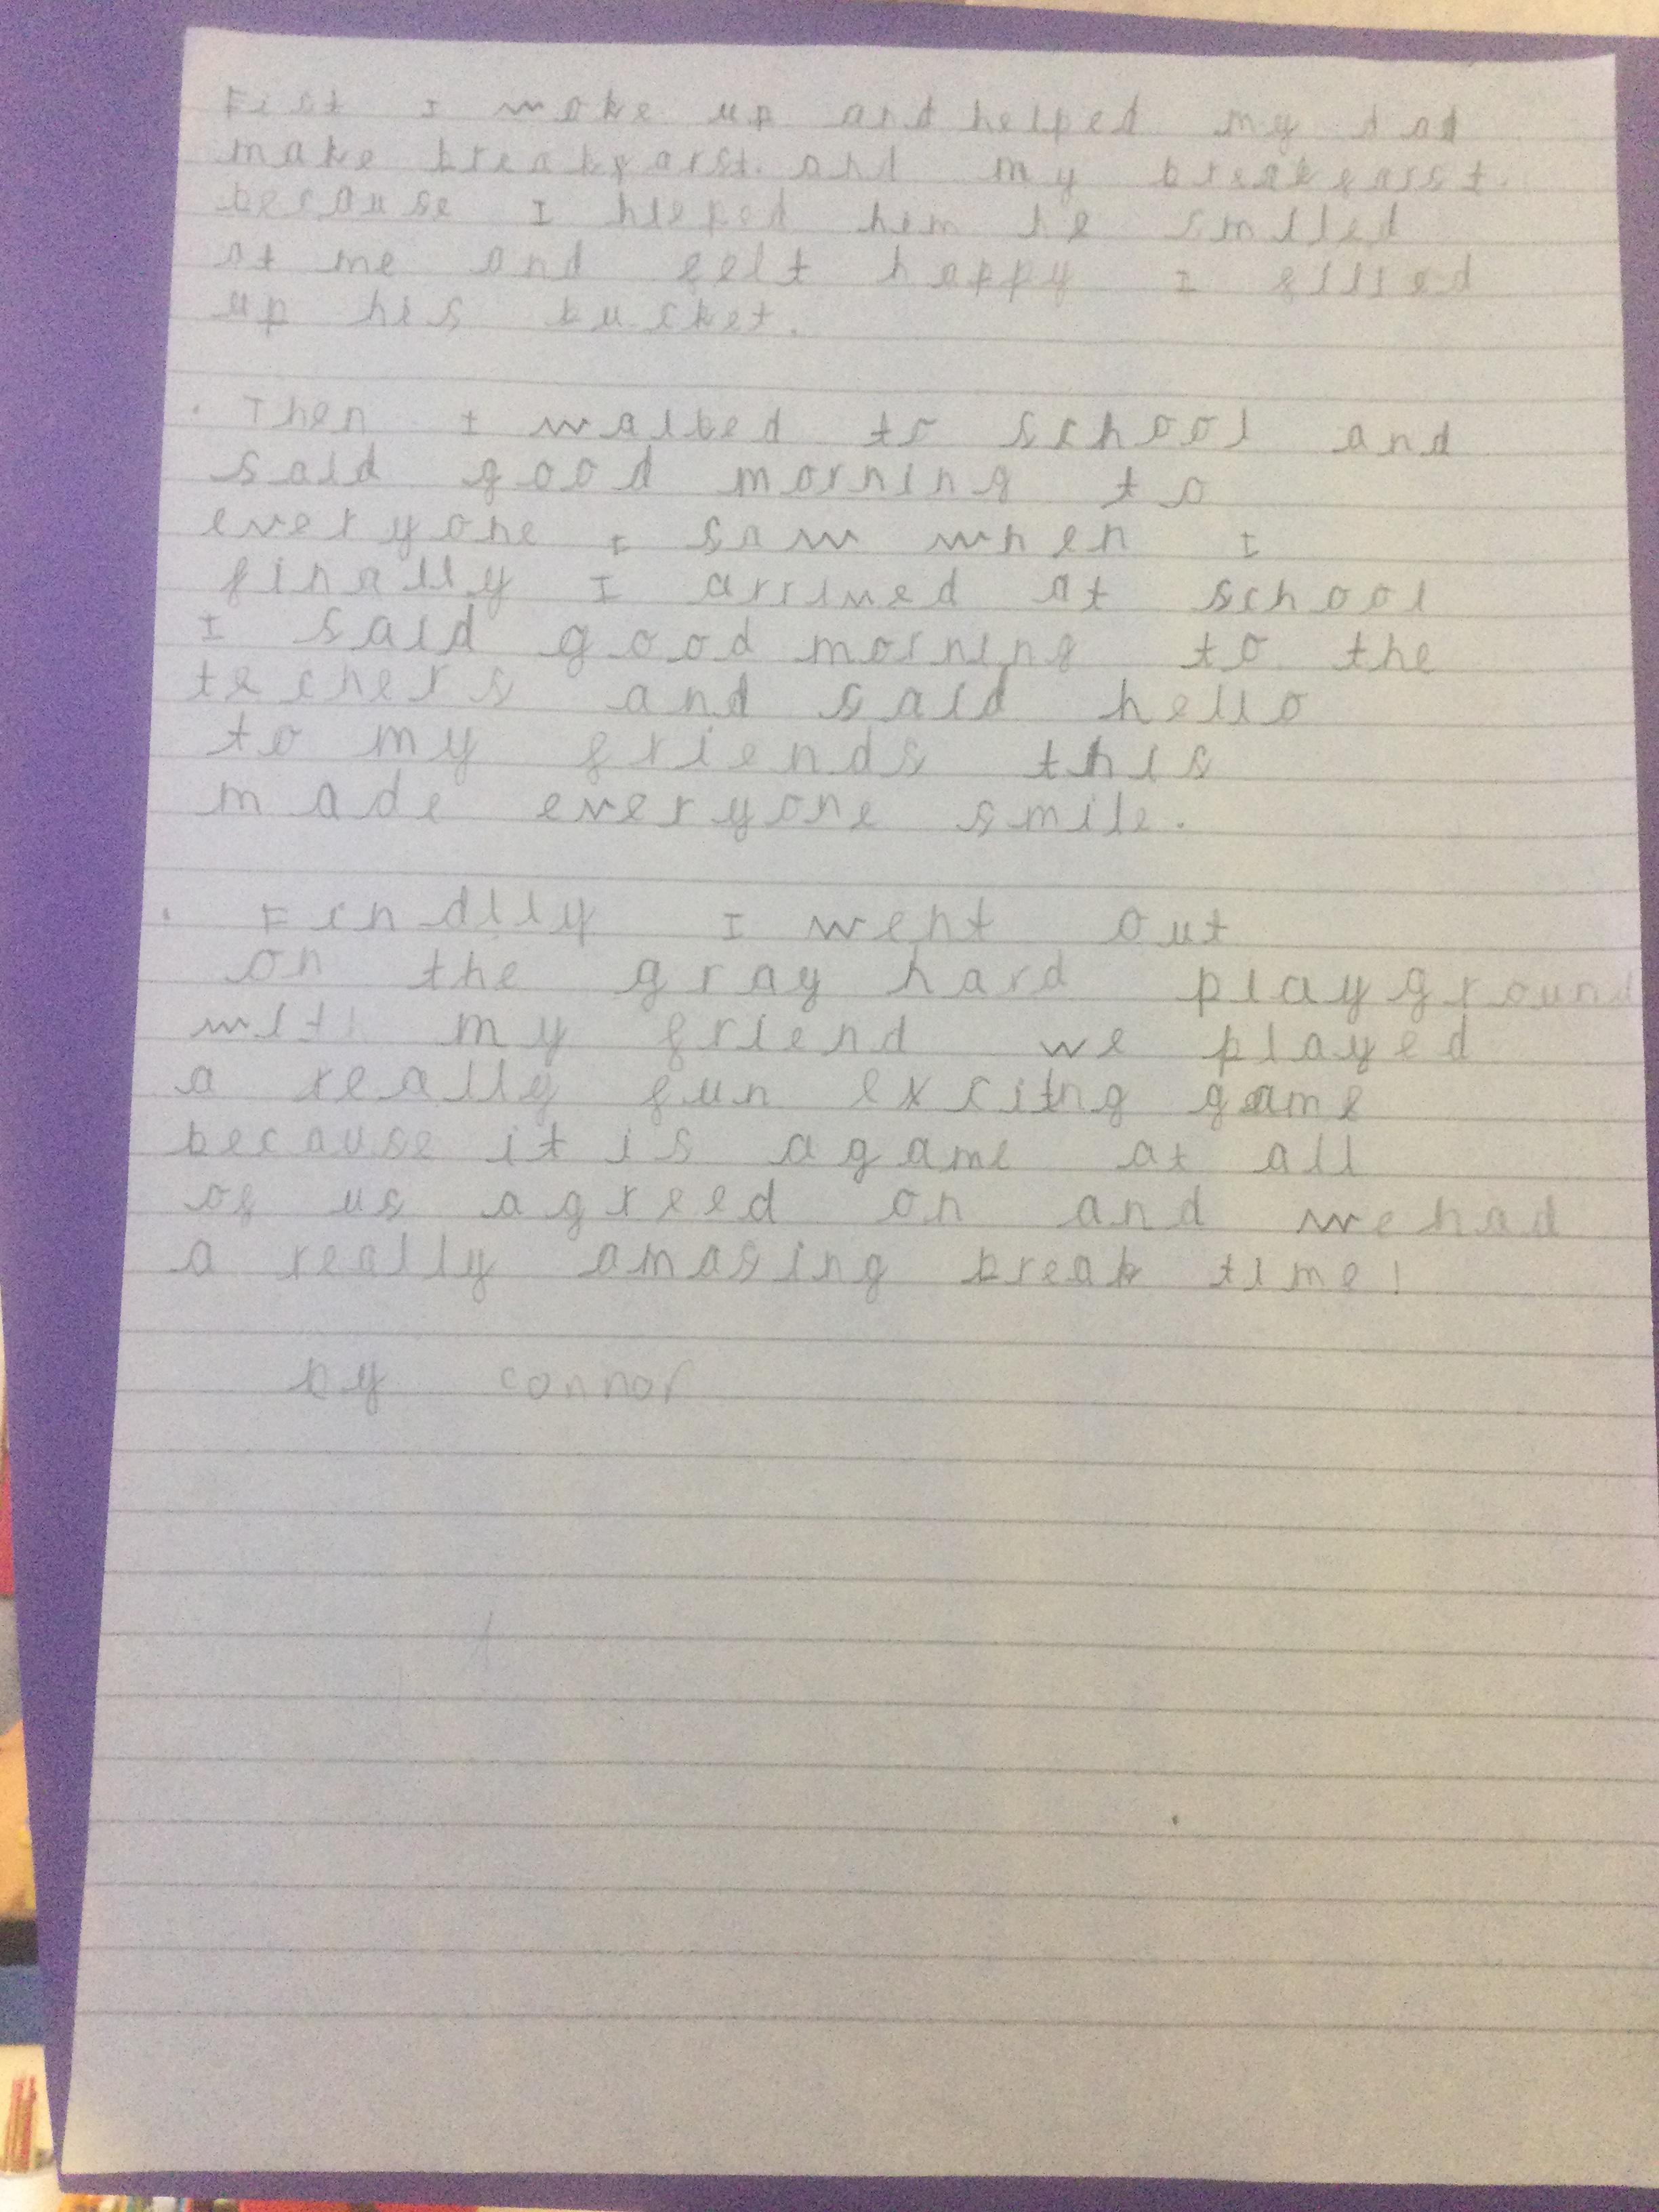 Fist I woke up and helped my dad
make breakfarst. and my breakfarst.
because I hleped him he smlled
at me and felt happy I filled
up his bucket.
. Then I walked to school and
said good morning to
everyone I saw when I
finally I arrived at school
I said good morning to the
techers and said hello
to my friends this
made everyone smile.
. Findlly I went out
on the gray hard playground
with my friend we played
a really fun exciting game
because it is a game at all
of us agreed on and we had
a really amasing break time!
by connor